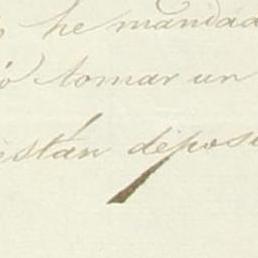 he mandad
ó tomar un
están deposi